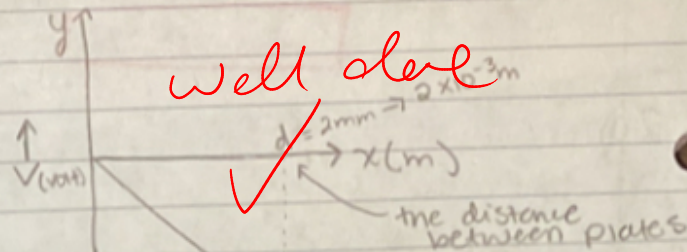 y
well done
d = 2mm → 2 × 10⁻³m
V(volt)
x(m)
the distance
between plates